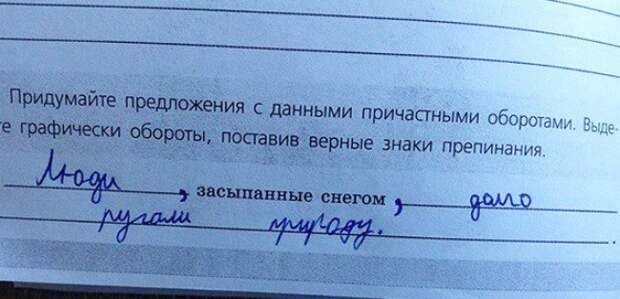 Придумайте предложения с данными причастными оборотами. Выде-
те графически обороты, поставив верные знаки препинания.
Люди, засыпанные снегом, долго
ругали природу.